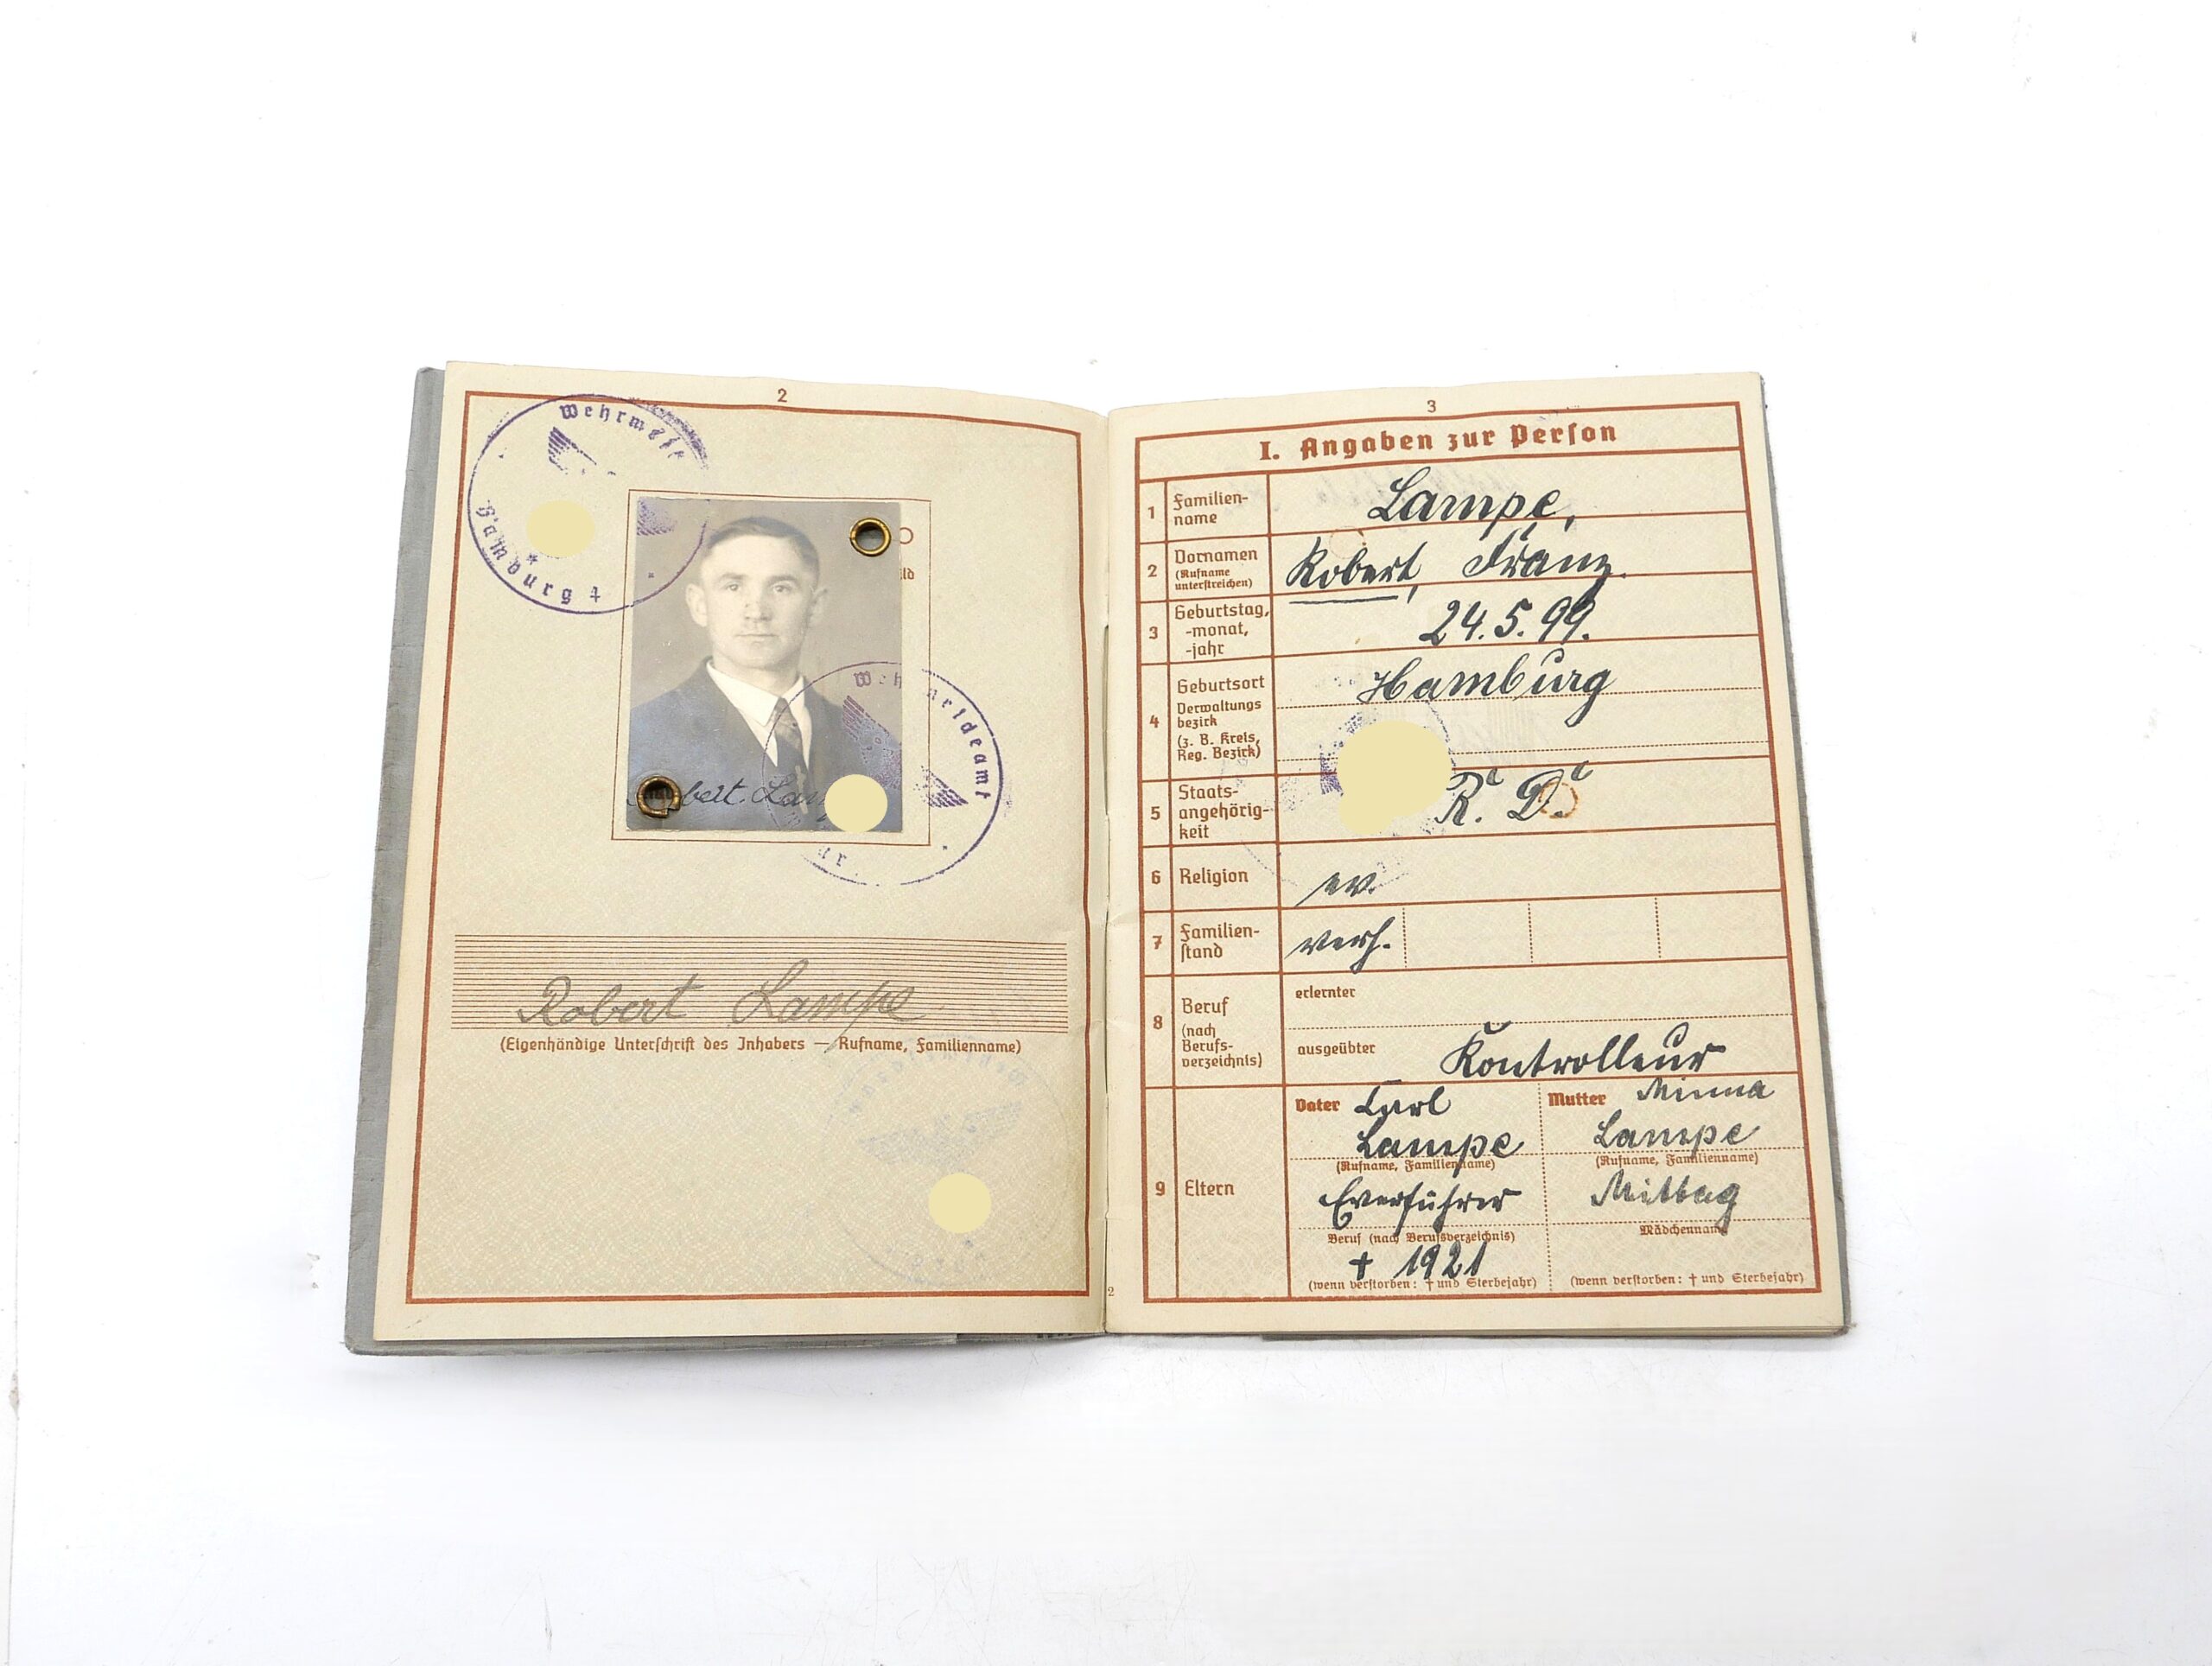 2
Wehrme
Hamburg 4
ild
Robert Lam
Weh meldeamt
Robert Lampe
(Eigenhändige Unterschrift des Inhabers — Rufname, Familienname)
3
I. Angaben zur Person
1 Familien-
name
Lampe,
2 Vornamen
(Rufname
unterstreichen)
Robert, Franz.
3 Geburtstag,
-monat,
-jahr
24.5.99.
4 Geburtsort
Verwaltungs
bezirk
(z. B. Kreis,
Reg. Bezirk)
Hamburg
5 Staats-
angehörig-
keit
R. D.
6 Religion
ev.
7 Familien-
stand
verh.
8 Beruf
(nach
Berufs-
verzeichnis)
erlernter
ausgeübter Kontrolleur
9 Eltern
Vater Carl
Lampe
(Rufname, Familienname)
Everführer
Beruf (nach Berufsverzeichnis)
† 1921
(wenn verstorben: † und Sterbejahr)
Mutter Minna
Lampe
(Rufname, Familienname)
Mittag
Mädchenname
(wenn verstorben: † und Sterbejahr)
2